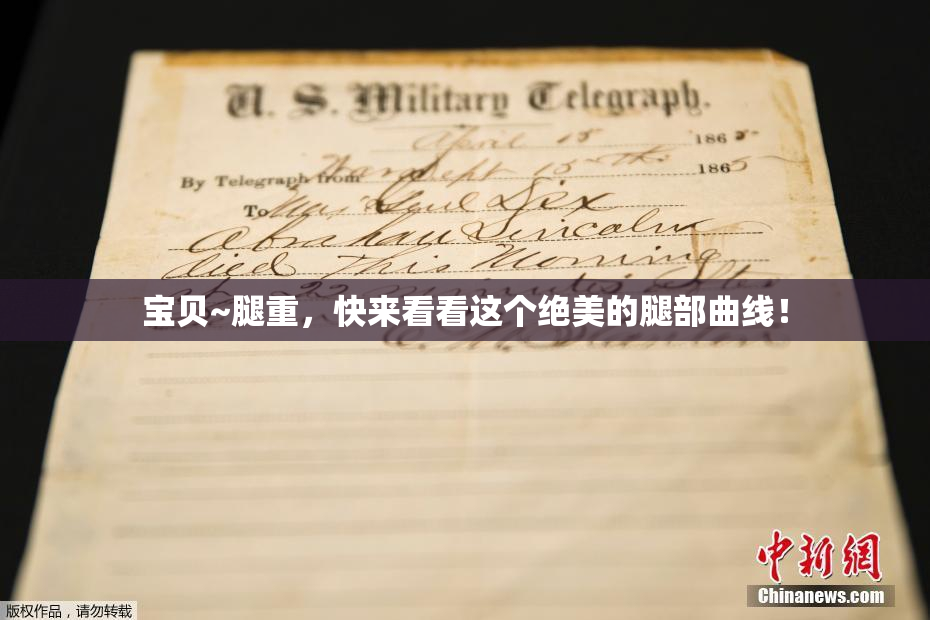 U. S. Military Telegraph.
April 15 1865
By Telegraph from War Dept 15th 1865
To Maj Genl Dix
Abraham Lincoln
died This Morning
at 22 minutes after
宝贝~腿重，快来看看这个绝美的腿部曲线！
中新網
Chinanews.com
版权作品，请勿转载